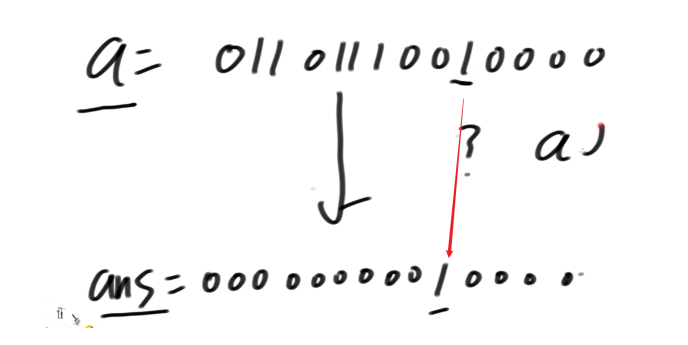 a= 01101110010000
? a)
ans= 00000000010000